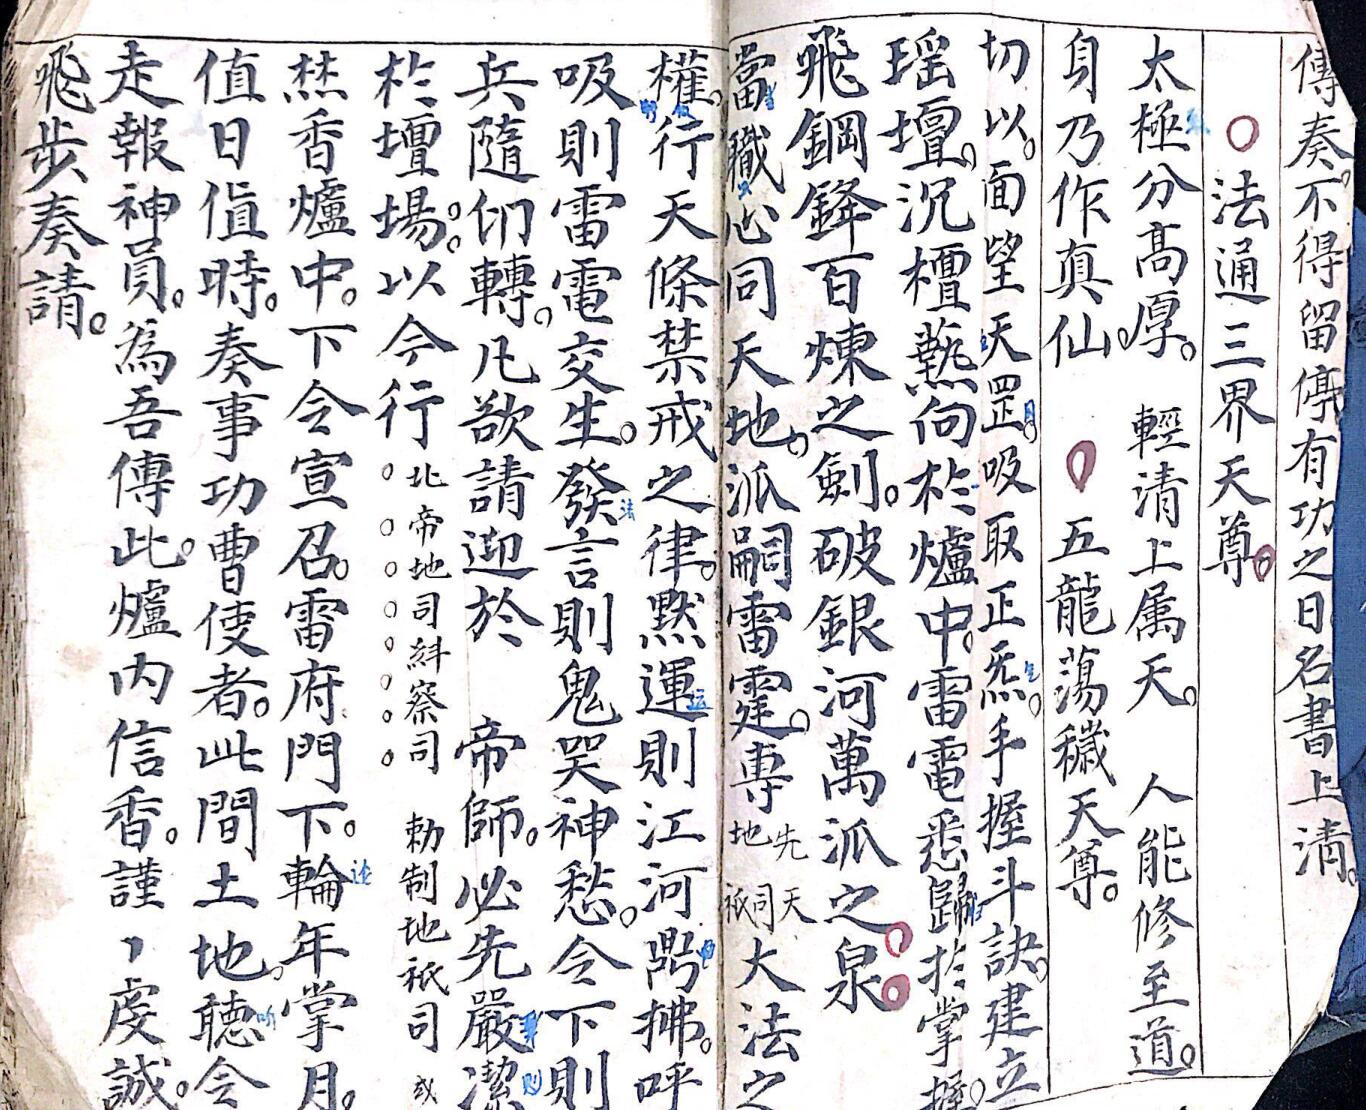 傳奏。不得留停有功之日名書上清。
○法通三界天尊。
太極分高厚。 輕清上属天。 人能修至道。
身乃作真仙。 五龍蕩穢天尊。
切以。面望天罡吸取正炁。手握斗訣。建立
瑶壇。沉檀爇向於爐中。雷電悉歸於掌握。
飛鋼鋒百煉之劍。破銀河萬派之泉
當職心同天地。派嗣雷霆。專先地天司祇大法之
權。行天條禁戒之律。黙運則江河鼎拂。呼
吸則雷電交生。發言則鬼哭神愁。令下則
兵隨印轉。凡欲請迎於 帝師。必先嚴潔
於壇場。以今行北帝地司糾察司 勅制地祇司 或
焚香爐中。下令宣召。雷府門下。輪年掌月。
值日值時。奏事功曹使者。此間土地。聽令
走報神員。為吾傳此。爐内信香。謹丶虔誠。
飛步奏請。